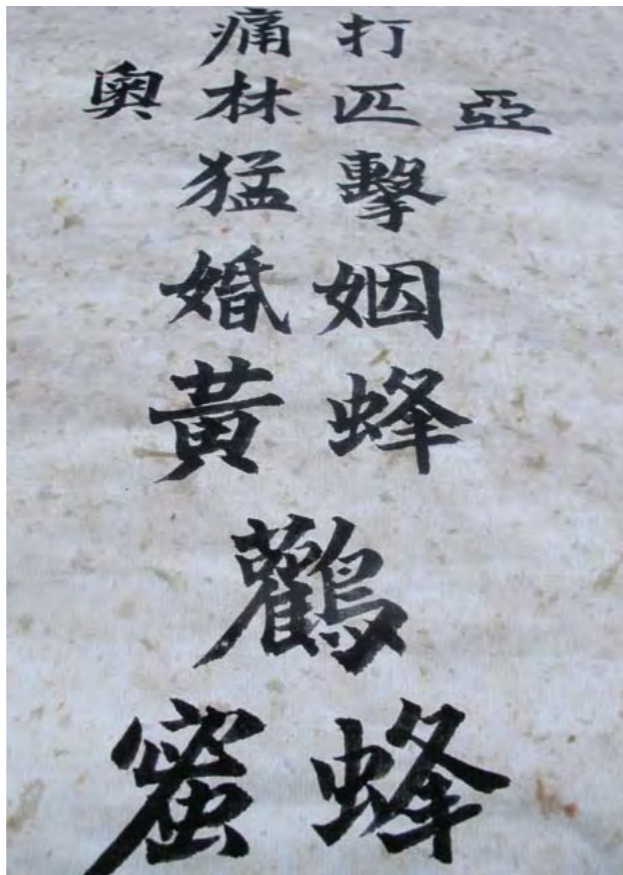 痛打
奧林匹亞
猛擊
婚姻
黃蜂
鸛
蜜蜂